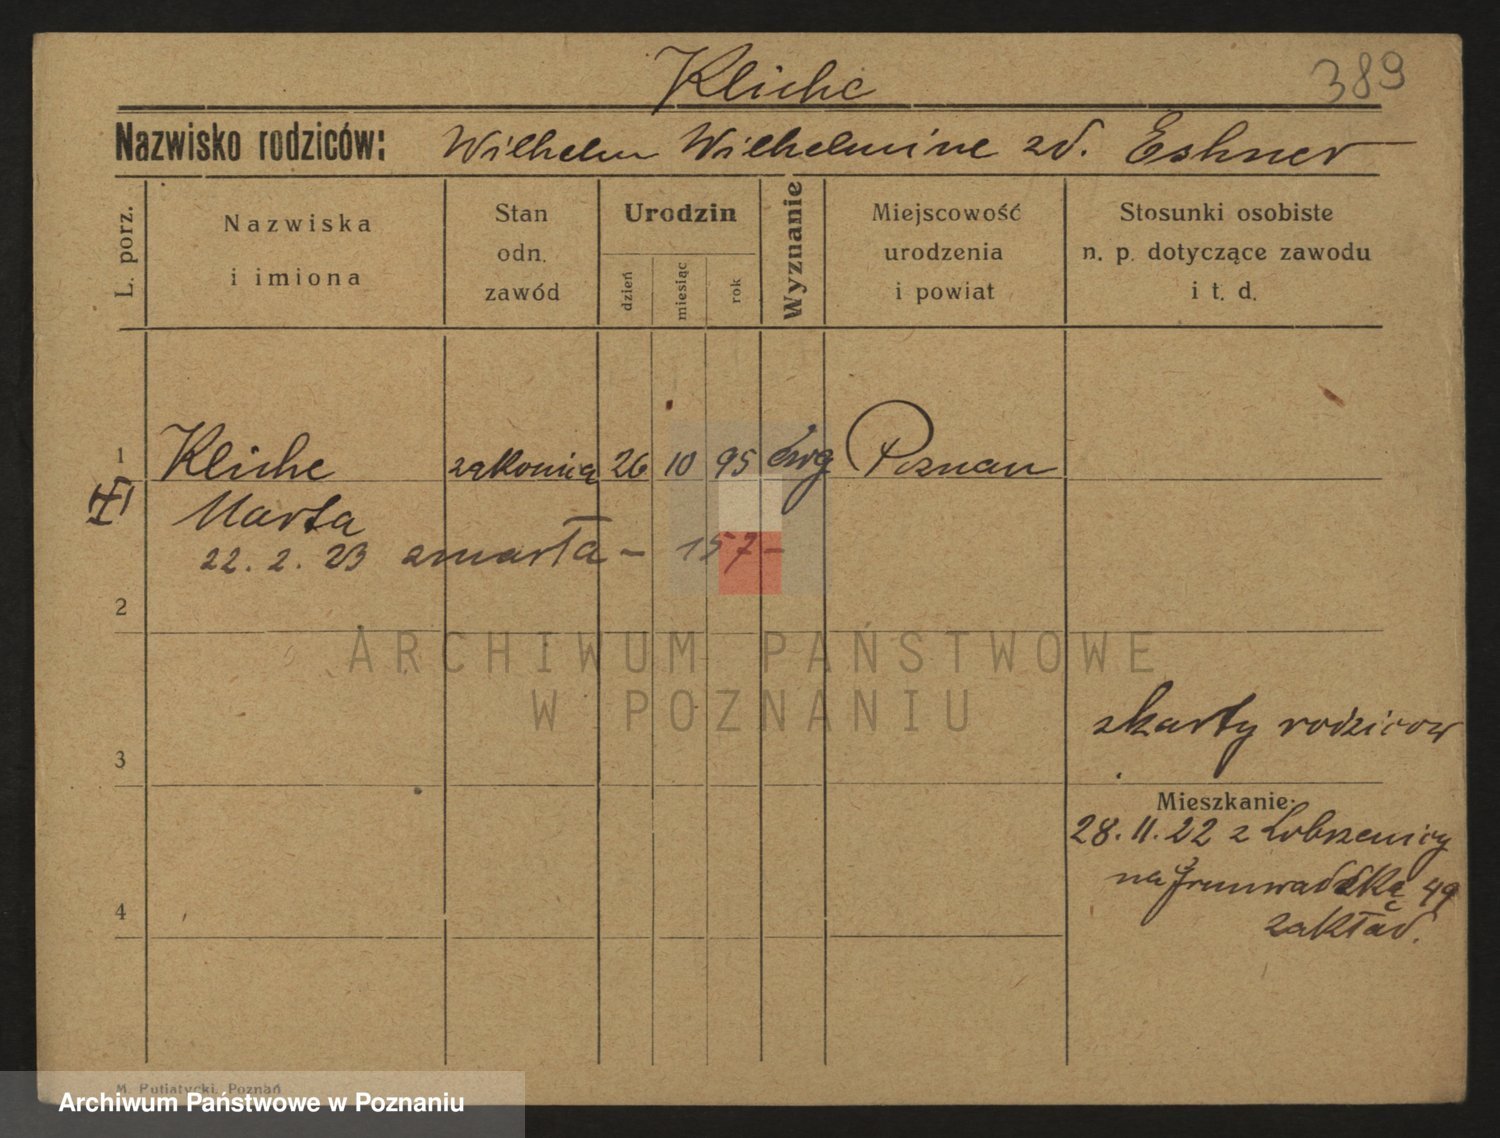 Kliche
389
Nazwisko rodziców: Wilhelm Wilhelmine zd. Eshner
L. porz.
Nazwiska
i imiona
Stan
odn.
zawód
Urodzin
dzień
miesiąc
rok
Wyznanie
Miejscowość
urodzenia
i powiat
Stosunki osobiste
n. p. dotyczące zawodu
i t. d.
1 Kliche zakonnica 26 10 95 Ewg Poznan
Marta
22. 2. 23 zmarła - 157 -
2
ARCHIWUM PAŃSTWOWE
W POZNANIU
z karty rodzicow
3
Mieszkanie:
28. 11. 22 z Lobzenicy
na Grunwadzką 49
zakład.
4
M. Putiatycki, Poznań
Archiwum Państwowe w Poznaniu